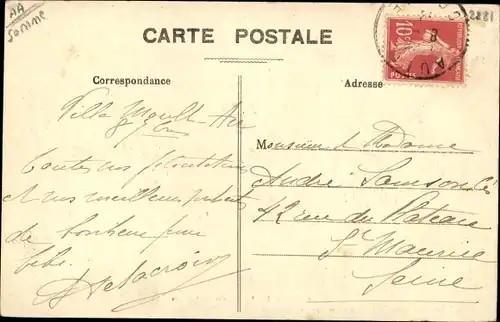 AA
Somme
2881
CARTE POSTALE
Correspondance
Adresse
10c
POSTES
AULT
Villa
toutes nos félicitations
et nos meilleurs souhaits
de bonheur pour
bébé.
Delacroix
Monsieur & Madame
André Samson
12 rue du Plateau
St Maurice
Seine